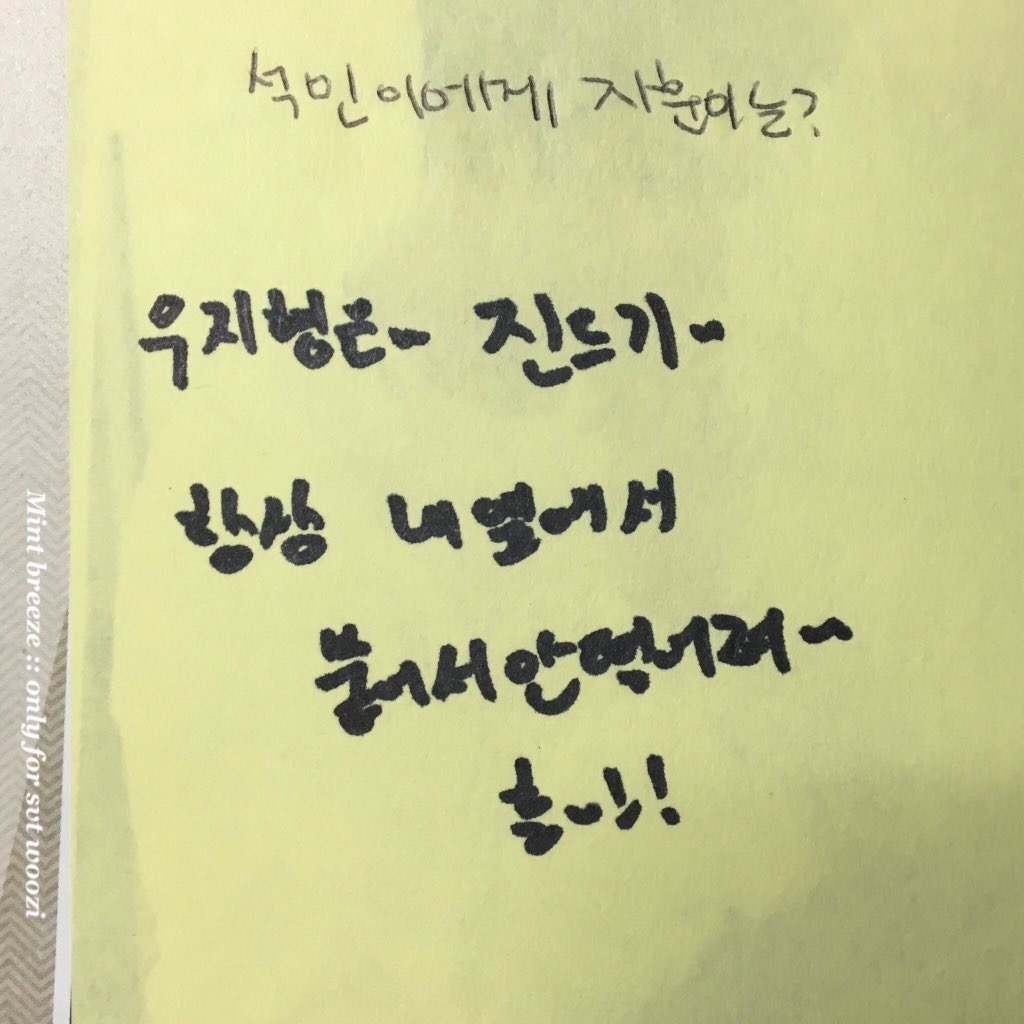 석민이에게 지훈이는?
우지형은~ 진드기~
항상 내 옆에서
붙어서 안떨어져~
흥!!
Mint breeze :: only for svt woozi